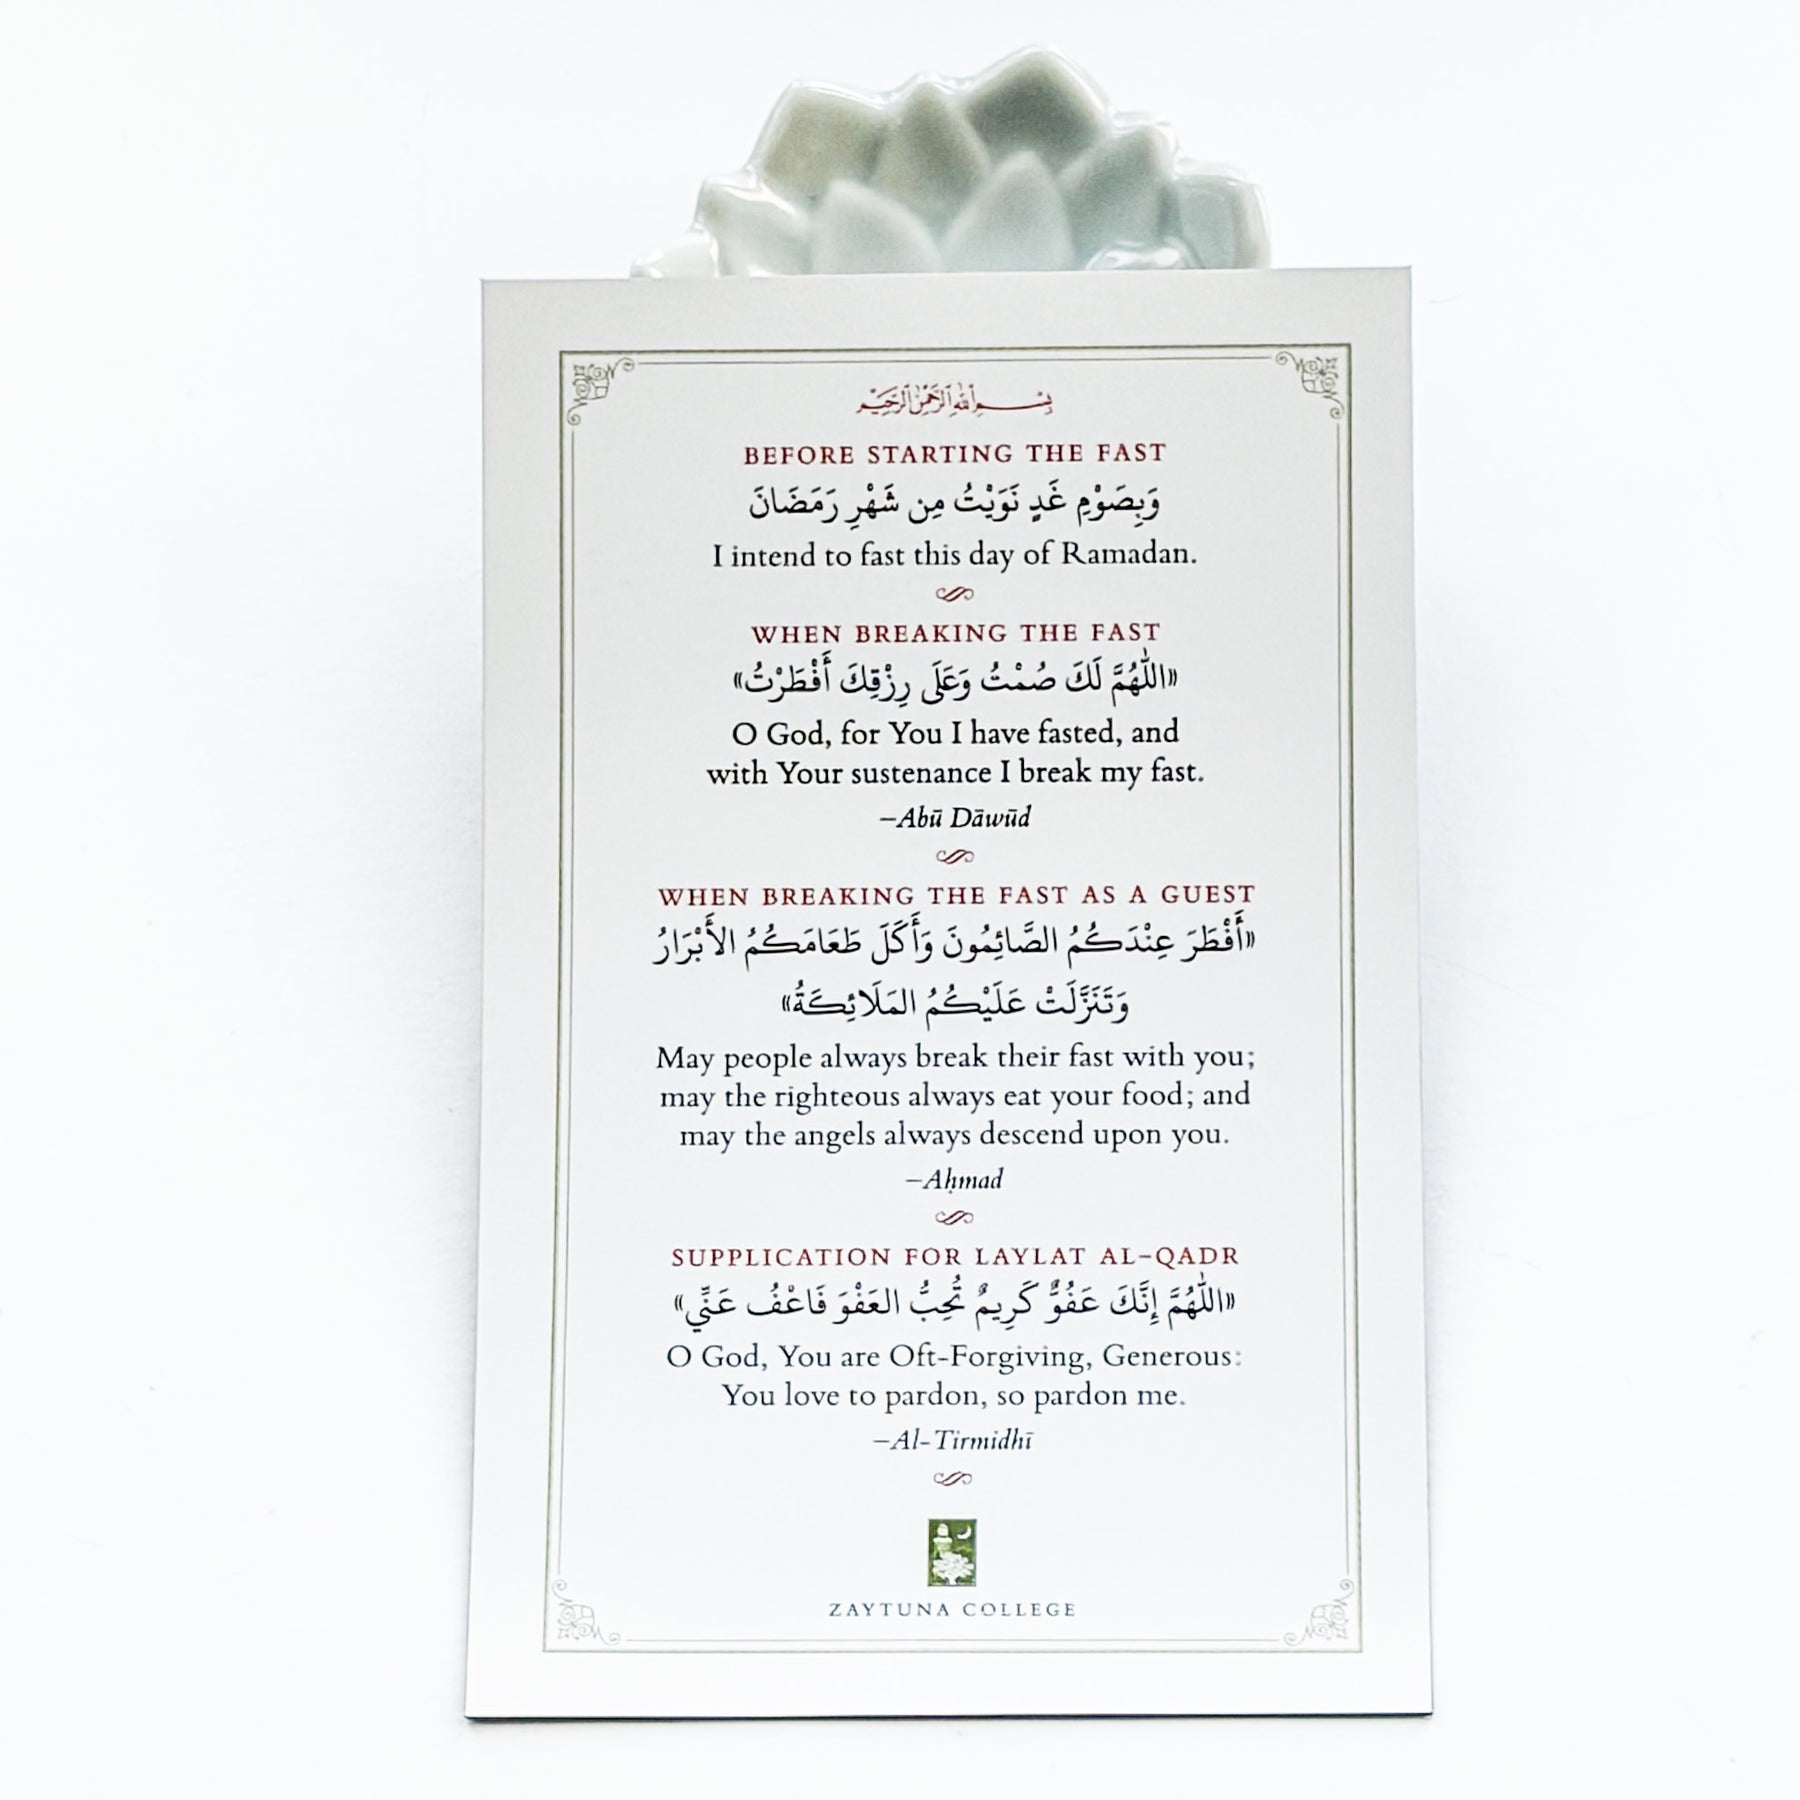 بسم الله الرحمن الرحيم
BEFORE STARTING THE FAST
وَبِصَوْمِ غَدٍ نَوَيْتُ مِن شَهْرِ رَمَضَانَ
I intend to fast this day of Ramadan.
WHEN BREAKING THE FAST
«اللّٰهُمَّ لَكَ صُمْتُ وَعَلَى رِزْقِكَ أَفْطَرْتُ»
O God, for You I have fasted, and
with Your sustenance I break my fast.
—Abū Dāwūd
WHEN BREAKING THE FAST AS A GUEST
«أَفْطَرَ عِنْدَكُمُ الصَّائِمُونَ وَأَكَلَ طَعَامَكُمُ الأَبْرَارُ
وَتَنَزَّلَتْ عَلَيْكُمُ المَلَائِكَةُ»
May people always break their fast with you;
may the righteous always eat your food; and
may the angels always descend upon you.
—Aḥmad
SUPPLICATION FOR LAYLAT AL-QADR
«اللّٰهُمَّ إِنَّكَ عَفُوٌّ كَرِيمٌ تُحِبُّ العَفْوَ فَاعْفُ عَنِّي»
O God, You are Oft-Forgiving, Generous:
You love to pardon, so pardon me.
—Al-Tirmidhī
ZAYTUNA COLLEGE